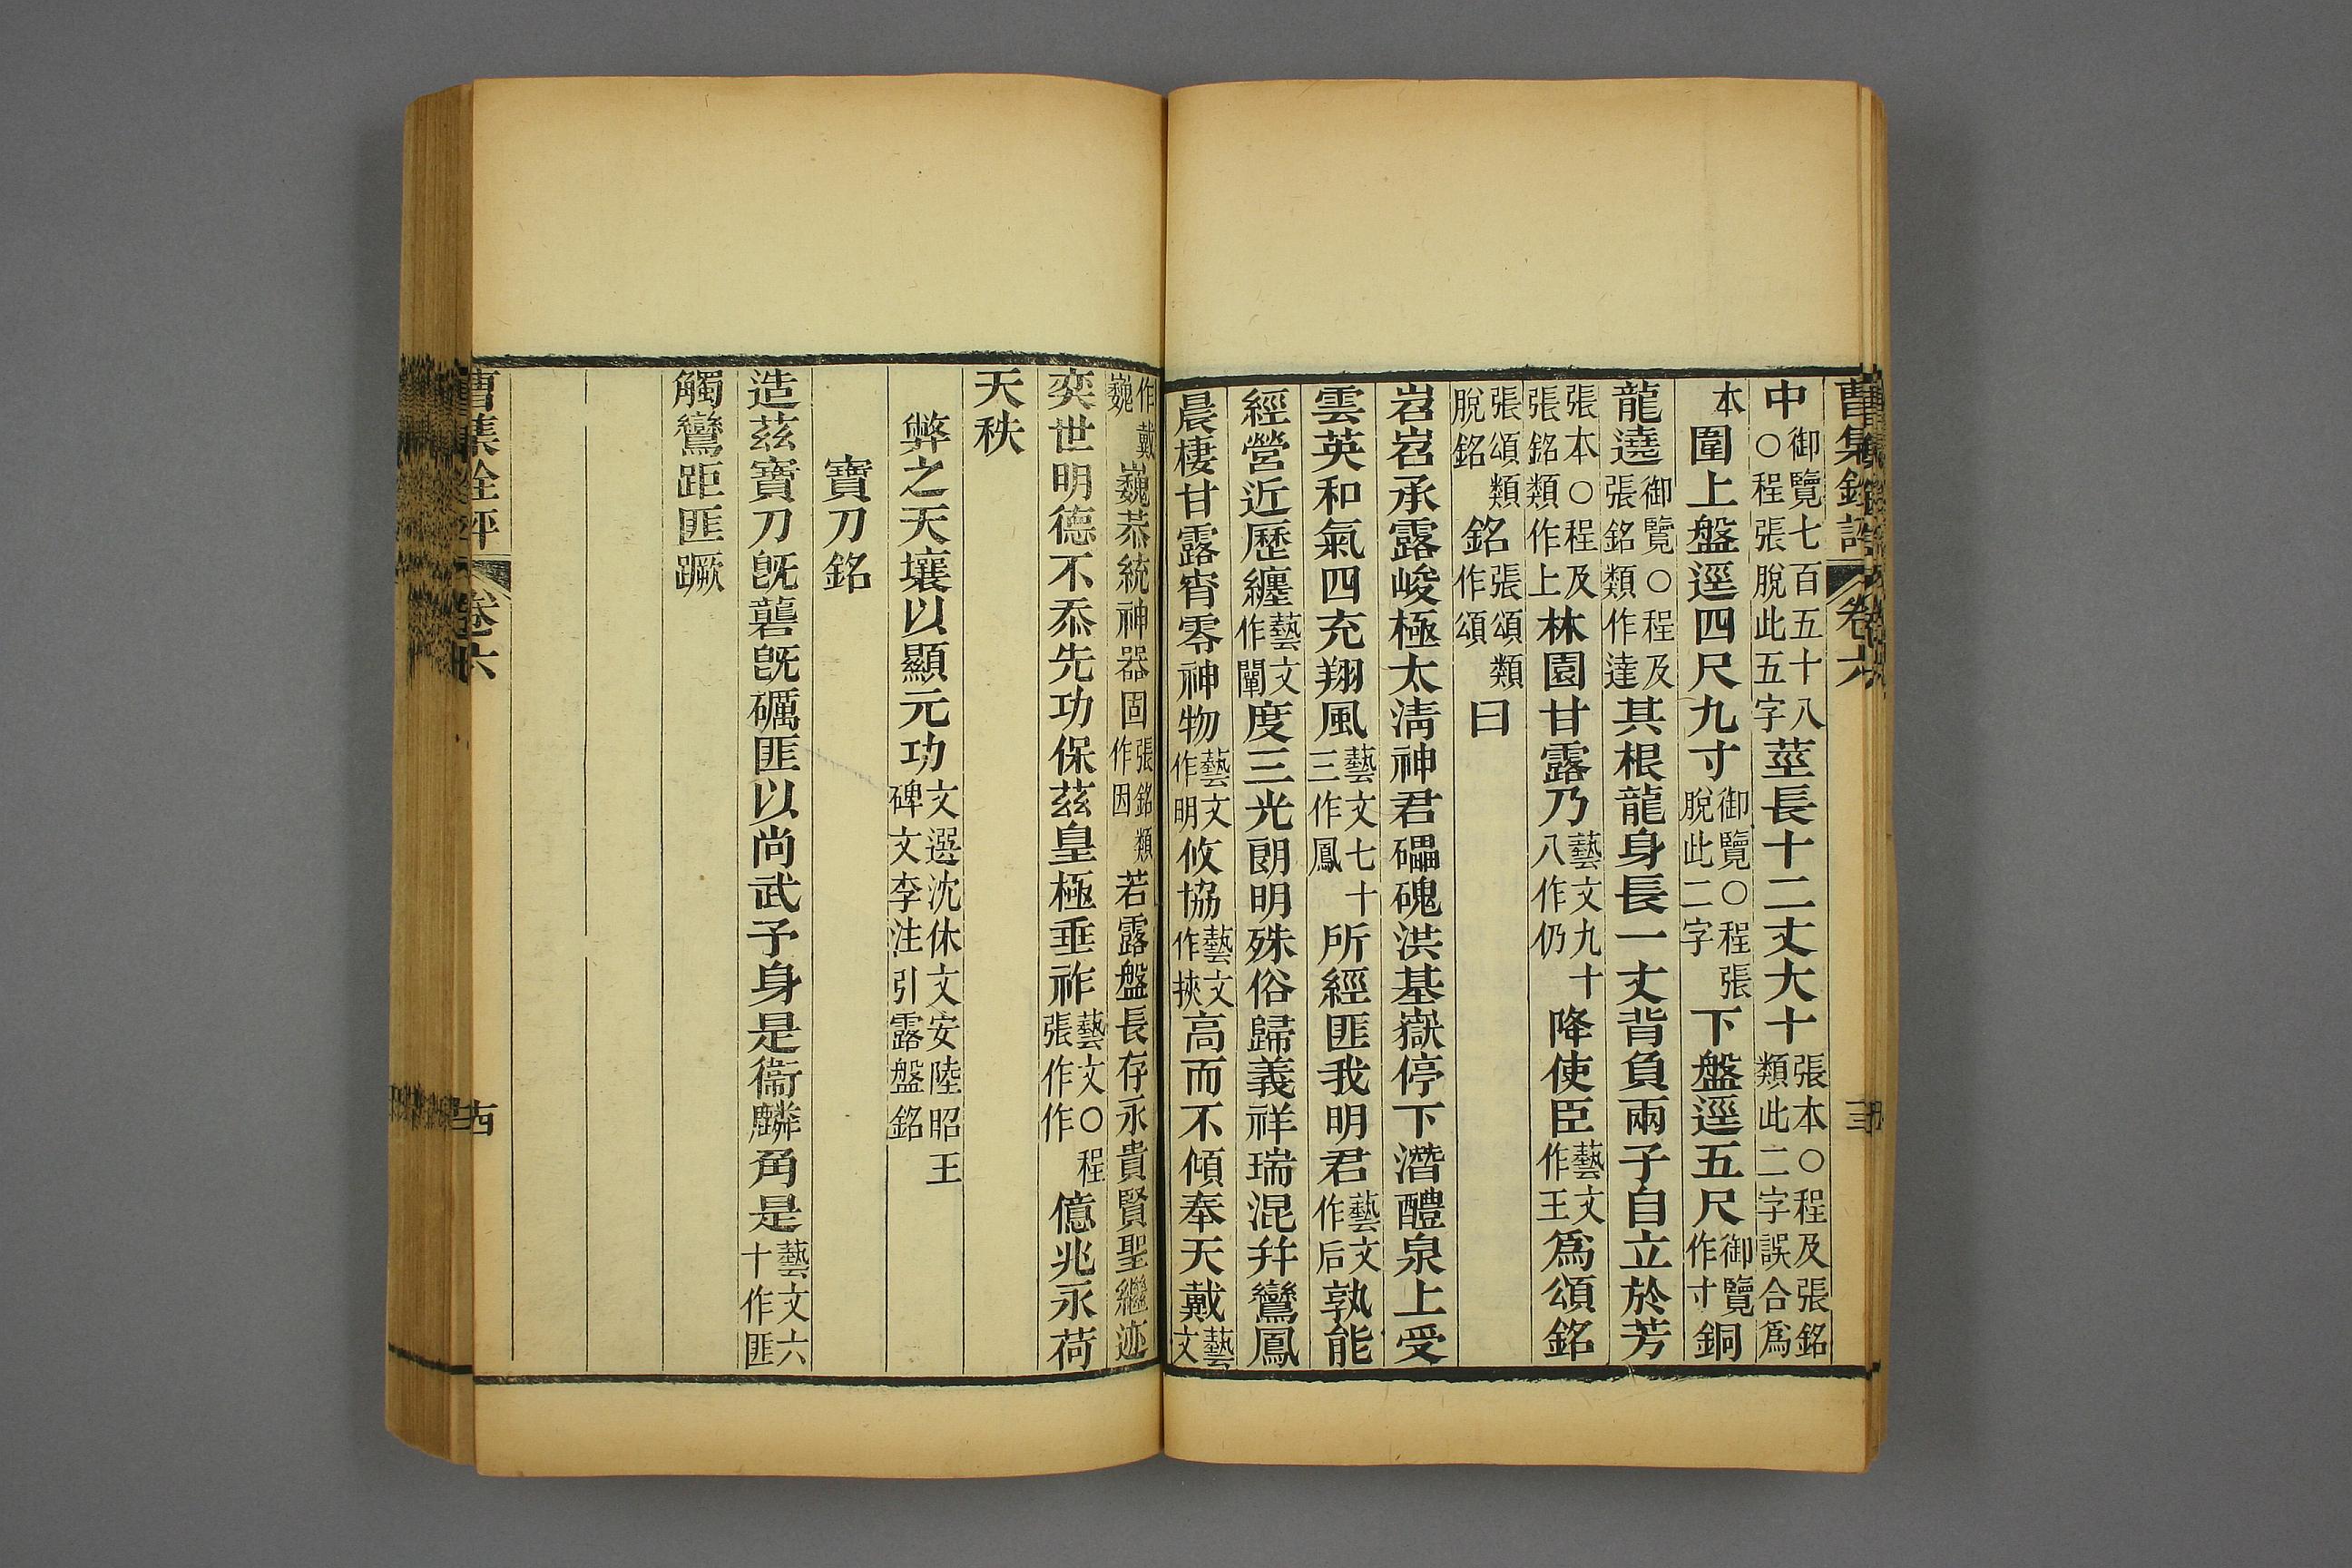 曹集銓評 卷六
中御覽七百五十八○程張脫此五字莖長十二丈大十張本○程及張銘類此二字誤合爲
本圍上盤逕四尺九寸御覽○程張脫此二字下盤逕五尺御覽作寸銅
龍遶御覽○程及張銘類作達其根龍身長一丈背負兩子自立於芳
張本○程及張銘類作上林園甘露乃藝文九十八作仍降使臣藝文作王爲頌銘
張頌類脫銘銘張頌類作頌曰
岧岧承露峻極太清神君礧磈洪基嶽停下潛醴泉上受
雲英和氣四充翔風藝文七十三作鳳所經匪我明君藝文作后孰能
經營近歷纏藝文作闡度三光朗明殊俗歸義祥瑞混幷鸞鳳
晨棲甘露宵零神物藝文作明攸協藝文作挾高而不傾奉天戴藝文
作戴巍巍恭統神器固張銘類作因若露盤長存永貴賢聖繼迹
奕世明德不忝先功保茲皇極垂祚藝文○程張作作億兆永荷
天秩
弊之天壤以顯元功文選沈休文安陸昭王碑文李注引露盤銘
寶刀銘
造茲寶刀旣礱旣礪匪以尚武予身是衞麟角是藝文六十作匪
觸鸞距匪蹶
曹集銓評 卷六 十四